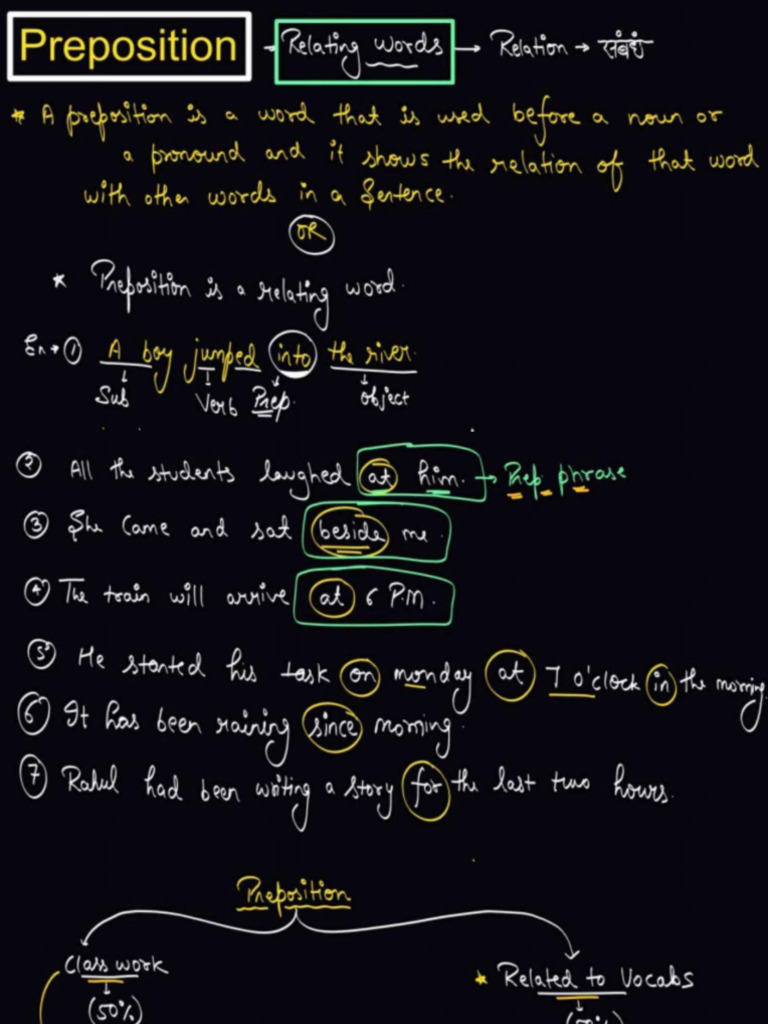 Preposition → Relating words → Relation → संबंध
* A preposition is a word that is used before a noun or
a pronound and it shows the relation of that word
with other words in a Sentence.
OR
* Preposition is a relating word.
Ex → ① A boy jumped into the river.
Sub Verb Prep. object
② All the students laughed at him. → Prep phrase
③ She Came and sat beside me.
④ The train will arrive at 6 P.M.
⑤ He started his task on monday at 7 o'clock in the morning.
⑥ It has been raining since morning.
⑦ Rahul had been writing a story for the last two hours.
Preposition
Class work
* Related to Vocabs
(50%)